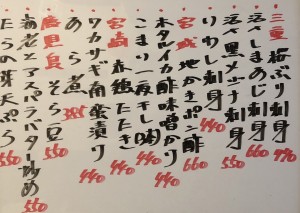 三重 桜ぶり刺身 770
活〆しまあじ刺身 660
活〆黒メジナ刺身 550
いわし刺身 440
宮城 地かきポン酢 660
ホタルイカ酢味噌かけ 440
こまい一夜干し(3本) 440
宮崎 赤鶏たたき 440
ワカサギ南蛮漬け 440
あら煮 385
鹿児島 そら豆 550
海老とアスパラバター炒め 550
たらの芽天ぷら 550